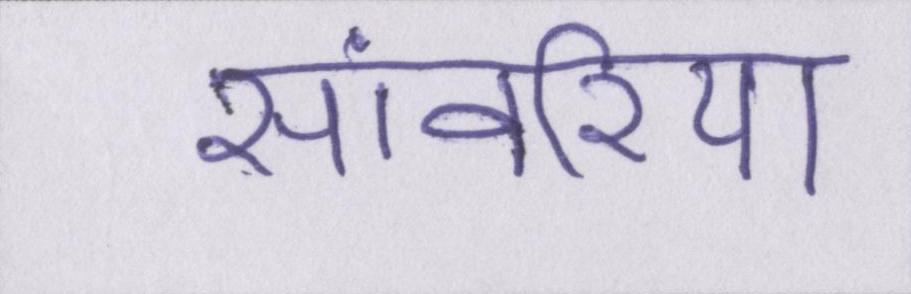 सांवरिया